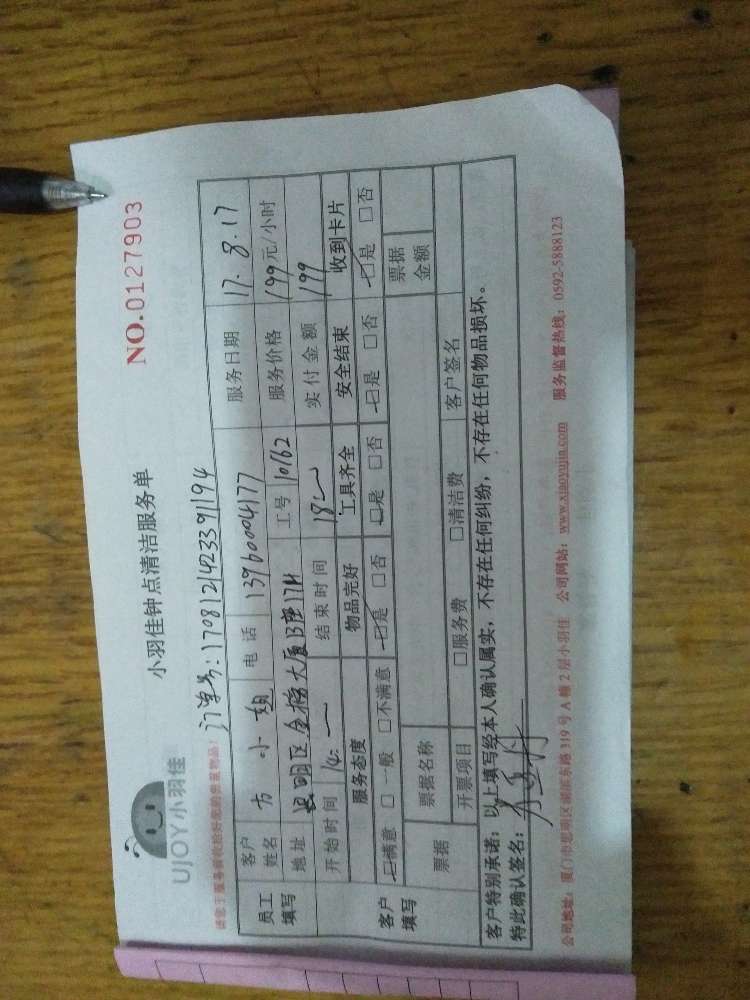 UJOY小羽佳
小羽佳钟点清洁服务单
NO.0127903
请您于服务前收拾好您的贵重物品!
订单号:1708121423391194
员工填写
客户姓名 方小姐 电话 13960004177 服务日期 17.8.17
地址 思明区金榜大厦B座17H 工号 10162 服务价格 199元/小时
开始时间 14: 结束时间 18: 实付金额 199
客户填写
服务态度 物品完好 工具齐全 安全结束 收到卡片
☑满意 □一般 □不满意 ☑是 □否 ☑是 □否 ☑是 □否 ☑是 □否
票据 票据名称 票据金额
开票项目 □服务费 □清洁费 客户签名
客户特别承诺:以上填写经本人确认属实,不存在任何纠纷,不存在任何物品损坏。
特此确认签名:
公司地址:厦门市思明区湖滨东路319号A幢2层小羽佳 公司网站:www.xiaoyujia.com 服务监督热线:0592-5888123